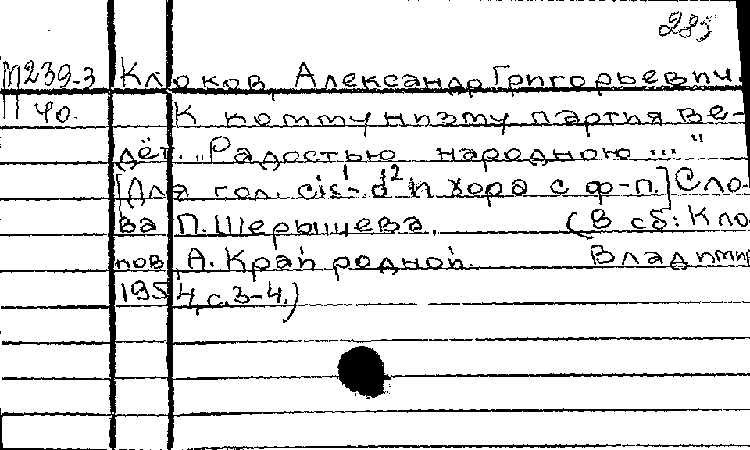 285
М239-3 Клюков, Александр Григорьевич.
П 40. К коммунизму партия ве-
дёт. „Радостью народною ..."
[Для гол. cis¹-d² и хора с ф-п.] Сло-
ва П. Шерышева. (В сб: Клю
ков, А. Край родной. Владимир
1954, с. 3-4.)